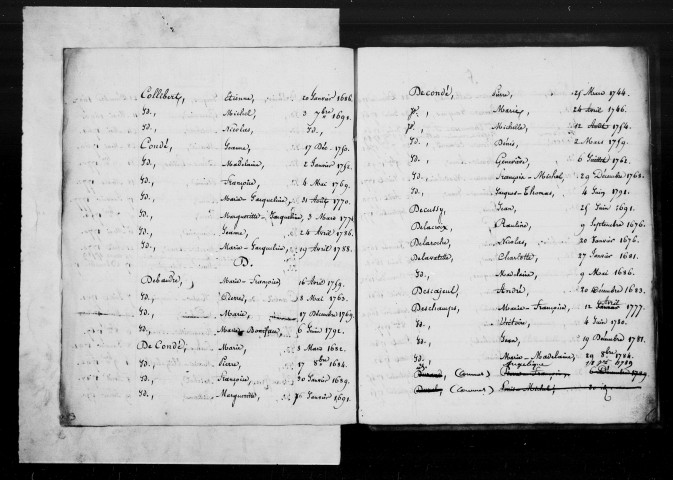 Collibert, Etienne, 20 Janvier 1686.
Id., Michel, 3 7bre 1691.
Id., Nicolas, Id.,
Condé, Jeanne, 17 Déc. 1750.
Id., Madelaine, 2 Janvier 1752.
Id., Françoise, 4 Mai 1769.
Id., Marie-Jacqueline, 31 Août 1770.
Id., Marguerite-Jacqueline, 3 Mars 1774
Id., Jeanne, 24 Avril 1786.
Id., Marie-Jacqueline, 19 Avril 1788.
D.
Debaudre, Marie-Françoise 16 Avril 1759.
Id., Pierre, 8 Mai 1763.
Id., Marie, 17 Décembre 1769.
Id., Marie Bonifan, 6 Juin 1792.
De Condé, Marie, 8 Mars 1682.
Id., Pierre, 17 8bre 1684.
Id., Françoise, 20 Janvier 1689.
Id., Marguerite, Janvier 1691.
Decondé, Pierre, 25 Mars 1744.
Id., Marie, 24 Avril 1746.
Id., Michelle, 12 Août 1754.
Id., Denis, 2 Mars 1759.
Id., Geneviève, 6 Juillet 1762.
Id., François-Michel, 29 Décembre 1768.
Id., Jacques-Thomas, 4 Juin 1791.
Decussy, Jean, 25 Juin 1691.
Delacroix, Pauline, 9 Septembre 1676.
Delaroche, Nicolas, 20 Janvier 1676.
Delavatelle, Charlotte, 27 Janvier 1681.
Id., Madelaine, 9 Mai 1686.
Descajeul, André, 20 Décembre 1683.
Deschamps, Marie-Françoise, 12 Avril 1777.
Id., Victoire, 4 Juin 1780.
Id., Jean, 19 Décembre 1781.
Id., Marie-Madelaine, 29 8bre 1784.
Id., Angelique 1789